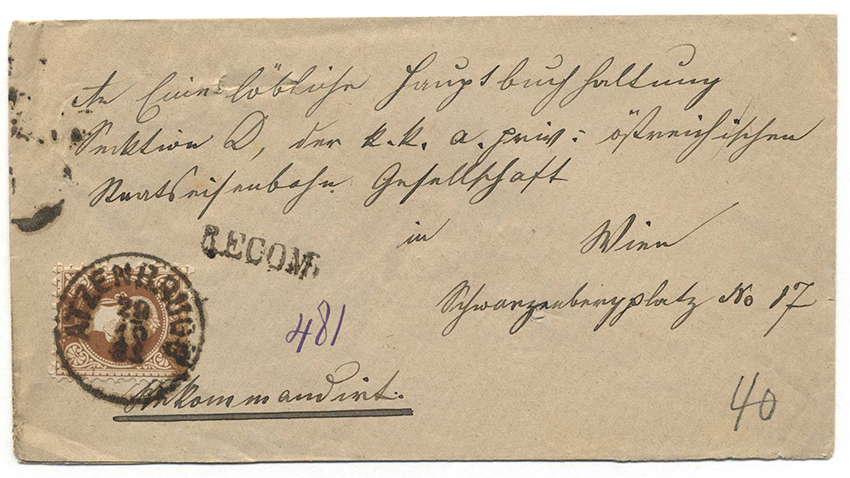 An Eine löbliche Hauptbuchhaltung
Sektion D, der k. k. a. priv: östreichischen
Staatseisenbahn Gesellschaft
in Wien
RECOM.
Schwarzenbergplatz No 17
ATZENBRUGG
481
Rekommandirt.
40